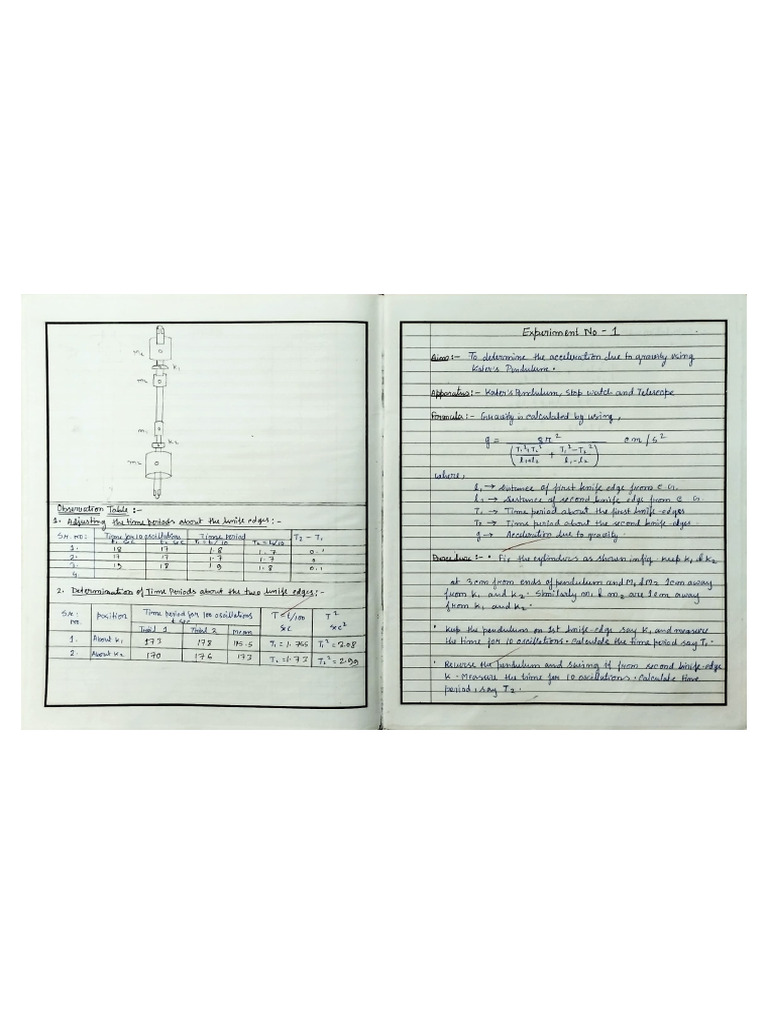 m₂
K₁
m₂
m₁
K₂
m₂
Observation Table :-
1. Adjusting the time periods about the knife edges :-
Sr. no: Time for 10 oscillations Time period T₂ - T₁
t₁ sec t₂ sec T₁ = t₁/10 T₂ = t₂/10
1. 18 17 1.8 1.7 0.1
2. 17 17 1.7 1.7 0
3. 19 18 1.9 1.8 0.1
4.
2. Determination of Time Periods about the two knife edges :-
Sr. no. Position Time period for 100 oscillations t sec T = t/100 sec T² sec²
Trial 1 Trial 2 Mean
1. About K₁ 173 178 175.5 T₁ = 1.755 T₁² = 3.08
2. About K₂ 170 176 173 T₂ = 1.73 T₂² = 2.99
Experiment No - 1
Aim :- To determine the acceleration due to gravity using
Kater's Pendulum.
Apparatus :- Kater's Pendulum, stop watch and Telescope
Formula :- Gravity is calculated by using,
g = 8π² / (T₁²+T₂² / l₁+l₂ + T₁²-T₂² / l₁-l₂) cm/s²
where,
l₁ → distance of first knife edge from C G.
l₂ → distance of second knife edge from C G.
T₁ → Time period about the first knife-edges
T₂ → Time period about the second knife-edges.
g → Acceleration due to gravity.
Procedure :- • Fix the cylinders as shown in fig. keep K₁ & K₂
at 3 cm from ends of pendulum and M₁ & M₂ 1 cm away
from K₁ and K₂. Similarly m₁ & m₂ are 1 cm away
from K₁ and K₂.
• Keep the pendulum on 1st knife-edge say K₁ and measure
the time for 10 oscillations. Calculate the time period say T₁.
• Reverse the pendulum and swing it from second knife-edge
K. Measure the time for 10 oscillations. Calculate time
period, say T₂.